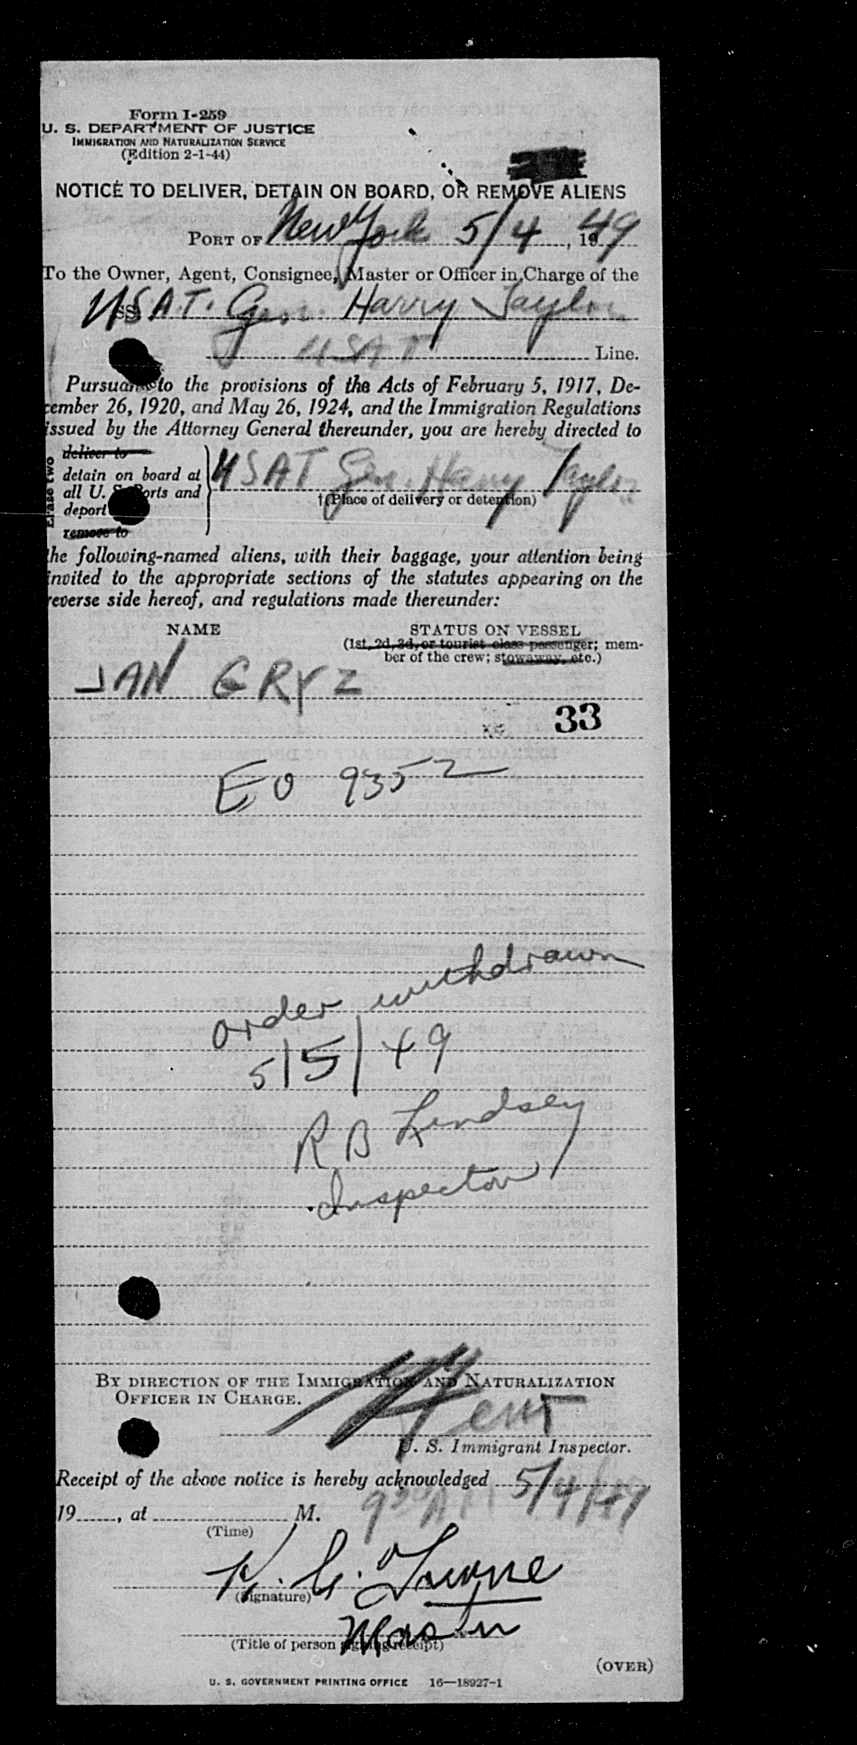 Form I-259
U. S. DEPARTMENT OF JUSTICE
IMMIGRATION AND NATURALIZATION SERVICE
(Edition 2-1-44)
NOTICE TO DELIVER, DETAIN ON BOARD, OR REMOVE ALIENS
PORT OF New York 5/4, 1949
To the Owner, Agent, Consignee, Master or Officer in Charge of the
SS USAT. Gen. Harry Taylor
USAT Line.
Pursuant to the provisions of the Acts of February 5, 1917, De-
cember 26, 1920, and May 26, 1924, and the Immigration Regulations
issued by the Attorney General thereunder, you are hereby directed to
Erase two
deliver to
detain on board at
all U. S. Ports and
deport
remove to
USAT Gen. Harry Taylor
†(Place of delivery or detention)
the following-named aliens, with their baggage, your attention being
invited to the appropriate sections of the statutes appearing on the
reverse side hereof, and regulations made thereunder:
NAME STATUS ON VESSEL
(1st, 2d, 3d, or tourist class passenger; mem-
ber of the crew; stowaway, etc.)
JAN GRYZ
33
EO 9352
order withdrawn
5/5/49
R B Lindsey
Inspector
BY DIRECTION OF THE IMMIGRATION AND NATURALIZATION
OFFICER IN CHARGE.
U. S. Immigrant Inspector.
Receipt of the above notice is hereby acknowledged 5/4/49
19, at M. 9 30 AM
(Time)
(Signature)
Master
(Title of person signing receipt)
(OVER)
U. S. GOVERNMENT PRINTING OFFICE 16—18927-1